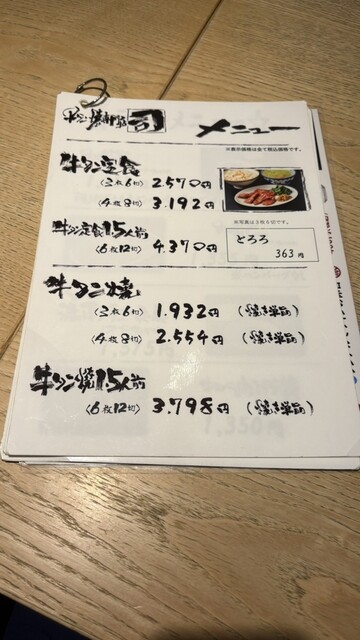 牛たん焼専門店 司 メニュー
※表示価格は全て税込価格です。
牛タン定食
(3枚6切) 2.570円
(4枚8切) 3.192円
※写真は3枚6切です。
牛タン定食1.5人前
(6枚12切) 4.370円
とろろ
363円
牛タン焼
(3枚6切) 1.932円 (焼き単品)
(4枚8切) 2.554円 (焼き単品)
牛タン焼1.5人前
(6枚12切) 3.798円 (焼き単品)